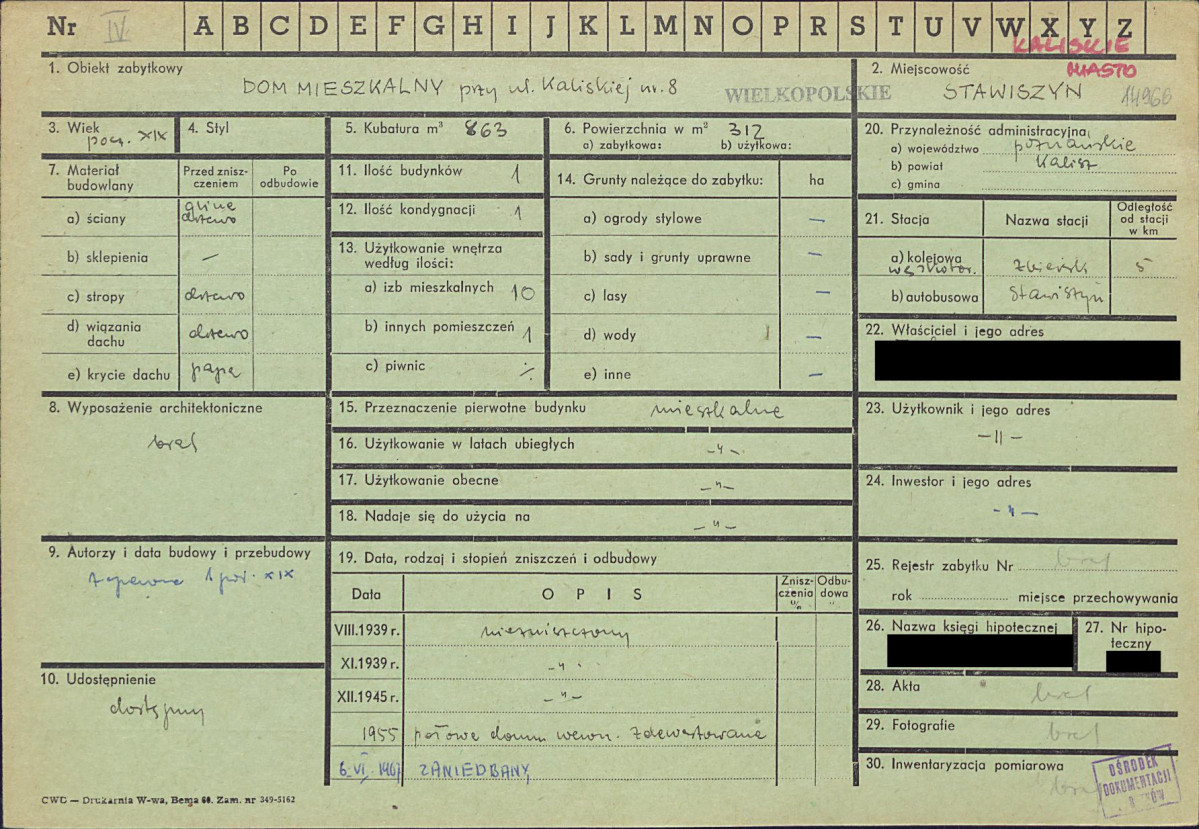 Nr IV A B C D E F G H I J K L M N O P R S T U V W X Y Z
KALISKIE
MIASTO
1. Obiekt zabytkowy
DOM MIESZKALNY przy ul. Kaliskiej nr. 8
WIELKOPOLSKIE
2. Miejscowość
STAWISZYN
3. Wiek
pocz. XIX
4. Styl
5. Kubatura m³ 863
6. Powierzchnia w m² 312
a) zabytkowa: b) użytkowa:
20. Przynależność administracyjna
a) województwo poznańskie
b) powiat Kalisz
c) gmina
7. Materiał budowlany
Przed zniszczeniem
Po odbudowie
a) ściany glina drzewo
b) sklepienia —
c) stropy drzewo
d) wiązania dachu drzewo
e) krycie dachu papa
11. Ilość budynków 1
12. Ilość kondygnacji 1
13. Użytkowanie wnętrza
według ilości:
a) izb mieszkalnych 10
b) innych pomieszczeń 1
c) piwnic ·/·
14. Grunty należące do zabytku: ha
a) ogrody stylowe —
b) sady i grunty uprawne —
c) lasy —
d) wody —
e) inne —
21. Stacja Nazwa stacji Odległość od stacji w km
a) kolejowa
wąskotor. Zbiersk 5
b) autobusowa Stawiszyn
22. Właściciel i jego adres
8. Wyposażenie architektoniczne
brak
15. Przeznaczenie pierwotne budynku mieszkalne
16. Użytkowanie w latach ubiegłych —"—
17. Użytkowanie obecne —"—
18. Nadaje się do użycia na —"—
23. Użytkownik i jego adres
—"—
24. Inwestor i jego adres
—"—
9. Autorzy i data budowy i przebudowy
zapewne 1 poł. XIX
19. Data, rodzaj i stopień zniszczeń i odbudowy
Data OPIS Zniszczenia % Odbudowa %
VIII.1939 r. niezniszczony
XI.1939 r. —"—
XII.1945 r. —"—
1955 połowa domu wewn. zdewastowana
6.VI.1967 ZANIEDBANY
10. Udostępnienie
dostępny
25. Rejestr zabytku Nr brak
rok miejsce przechowywania
26. Nazwa księgi hipotecznej
27. Nr hipoteczny
28. Akta brak
29. Fotografie brak
30. Inwentaryzacja pomiarowa
brak
OŚRODEK
DOKUMENTACJI
CWD — Drukarnia W-wa, Bema 60. Zam. nr 349-5162